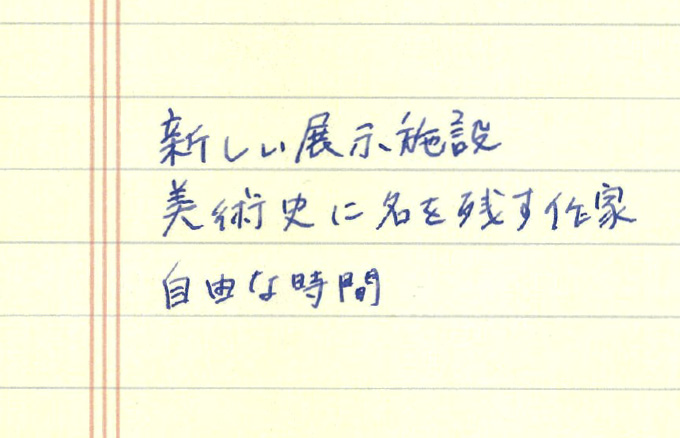 新しい展示施設
美術史に名を残す作家
自由な時間